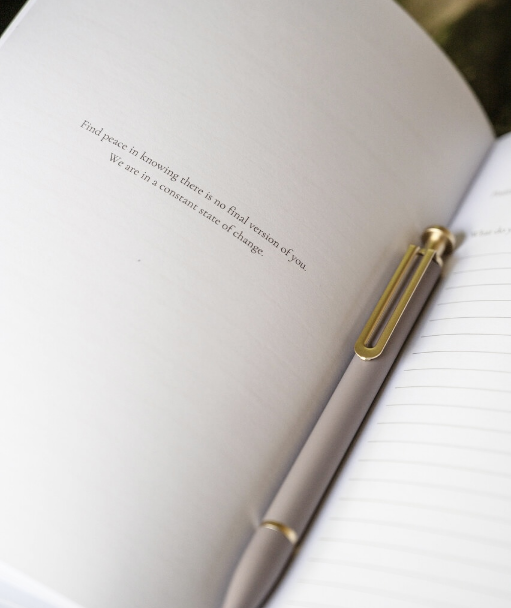 Find peace in knowing there is no final version of you.
We are in a constant state of change.